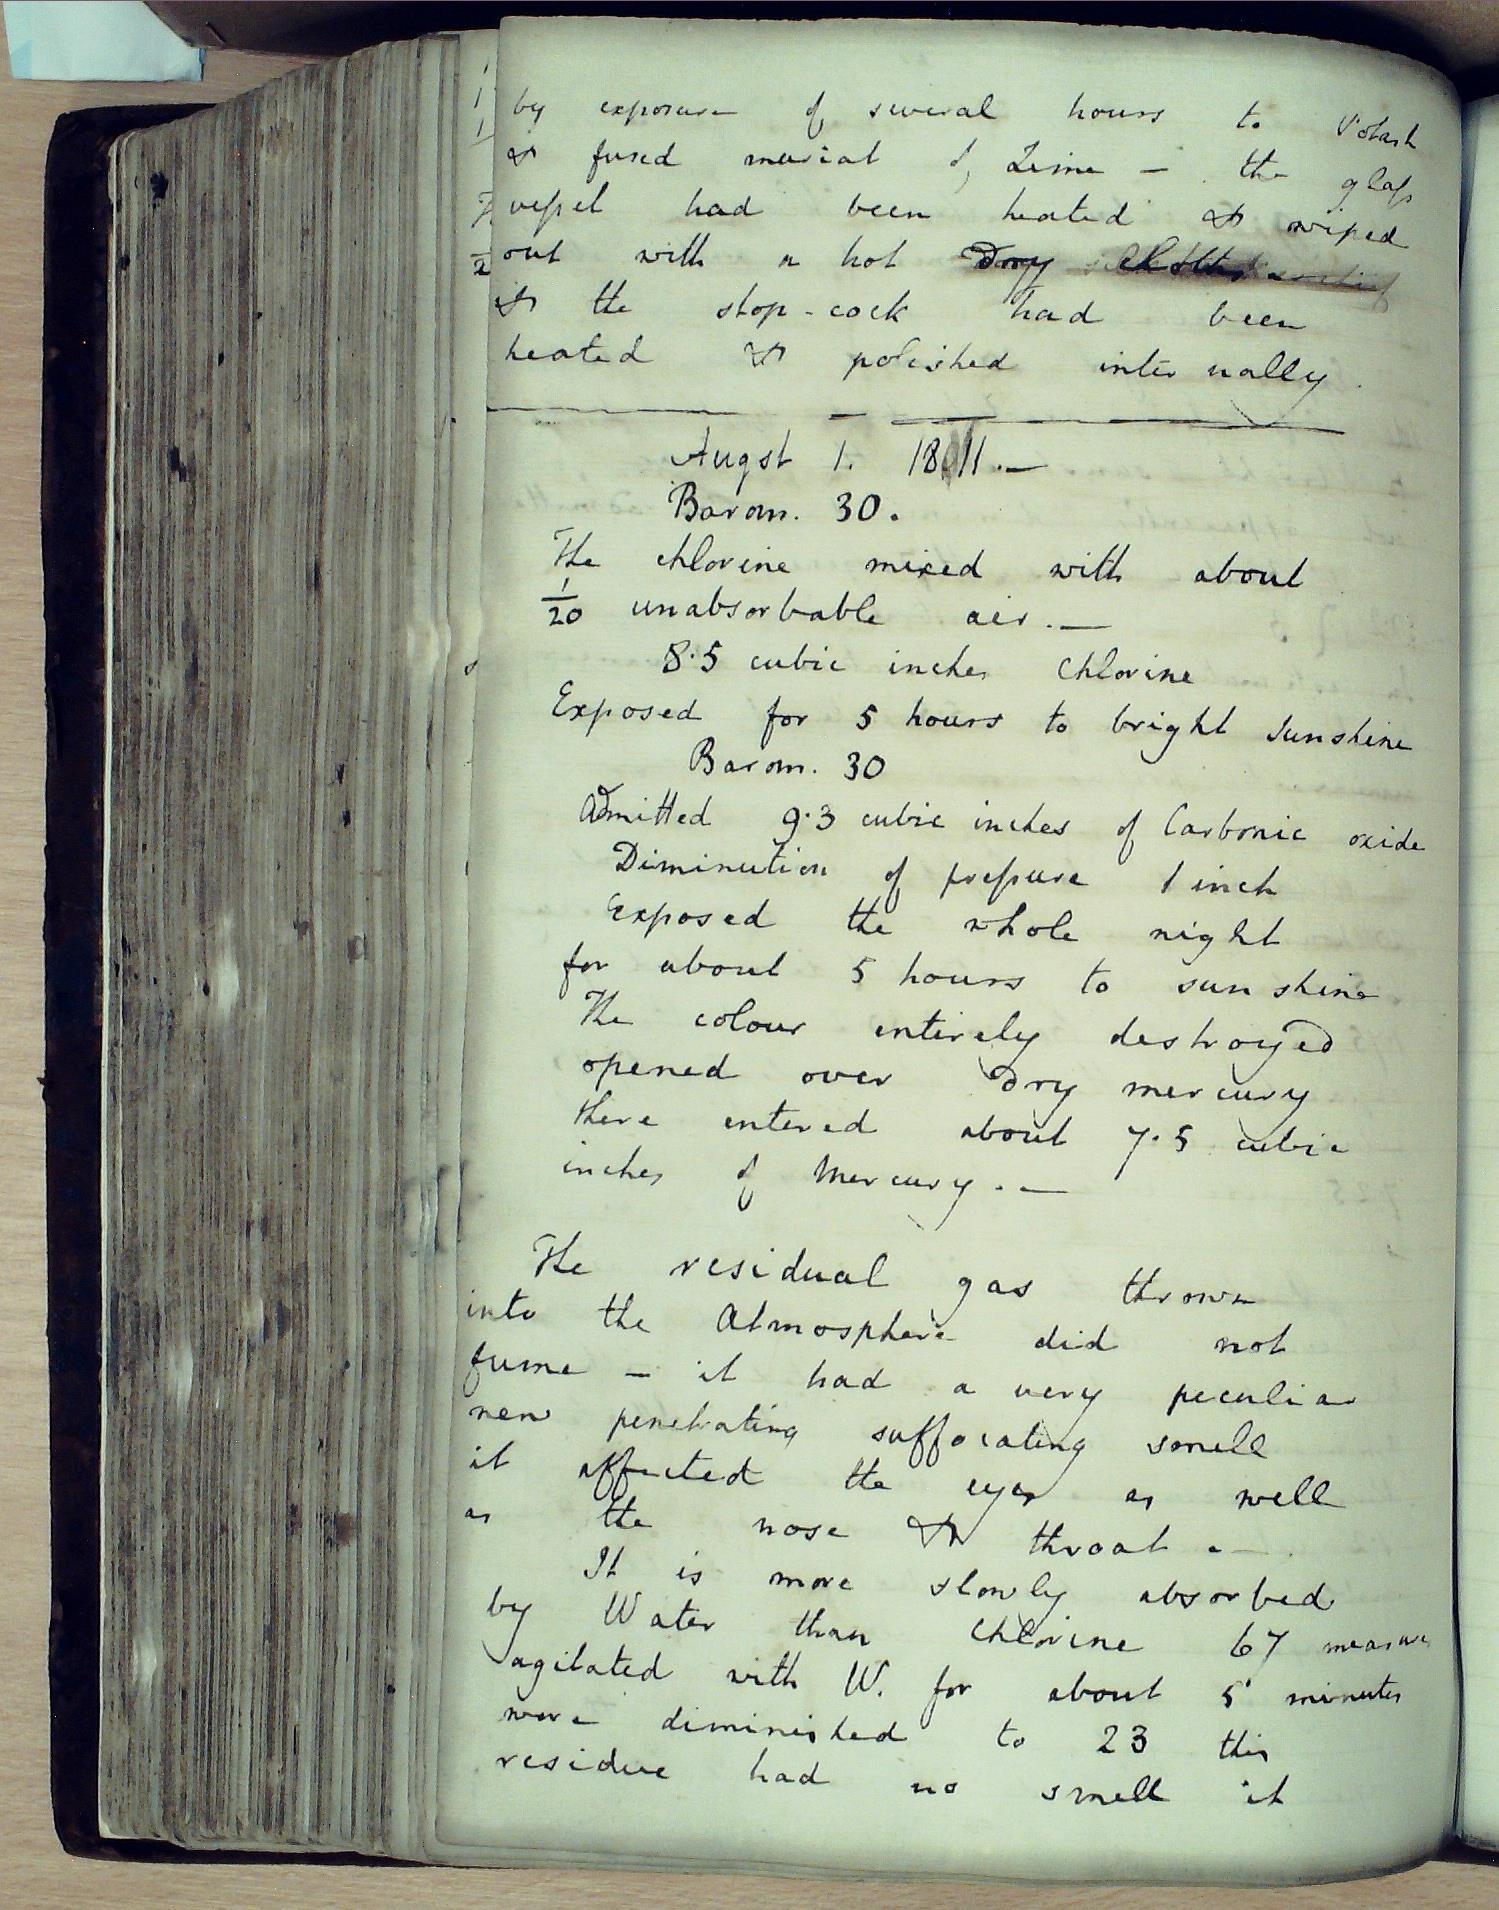 by exposure of several hours to Potash
& fused muriat of Lime – the glass
vessel had been heated & wiped
out with a hot Dry
& the stop-cock had been
heated & polished internally.
Augst 1. 1811. —
Barom. 30.
The chlorine mixed with about
1/20 unabsorbable air. —
8.5 cubic inches Chlorine
Exposed for 5 hours to bright sunshine
Barom. 30
Admitted 9.3 cubic inches of Carbonic oxide
Diminution of pressure 1 inch
Exposed the whole night
for about 5 hours to sunshine
The colour entirely destroyed
opened over Dry mercury
there entered about 7.5 cubic
inches of Mercury. —
The residual gas thrown
into the Atmosphere did not
fume – it had a very peculiar
new penetrating suffocating smell
it affected the eyes as well
as the nose & throat. —
It is more slowly absorbed
by Water than Chlorine 67 measures
agitated with W. for about 5 minutes
were diminished to 23 this
residue had no smell it